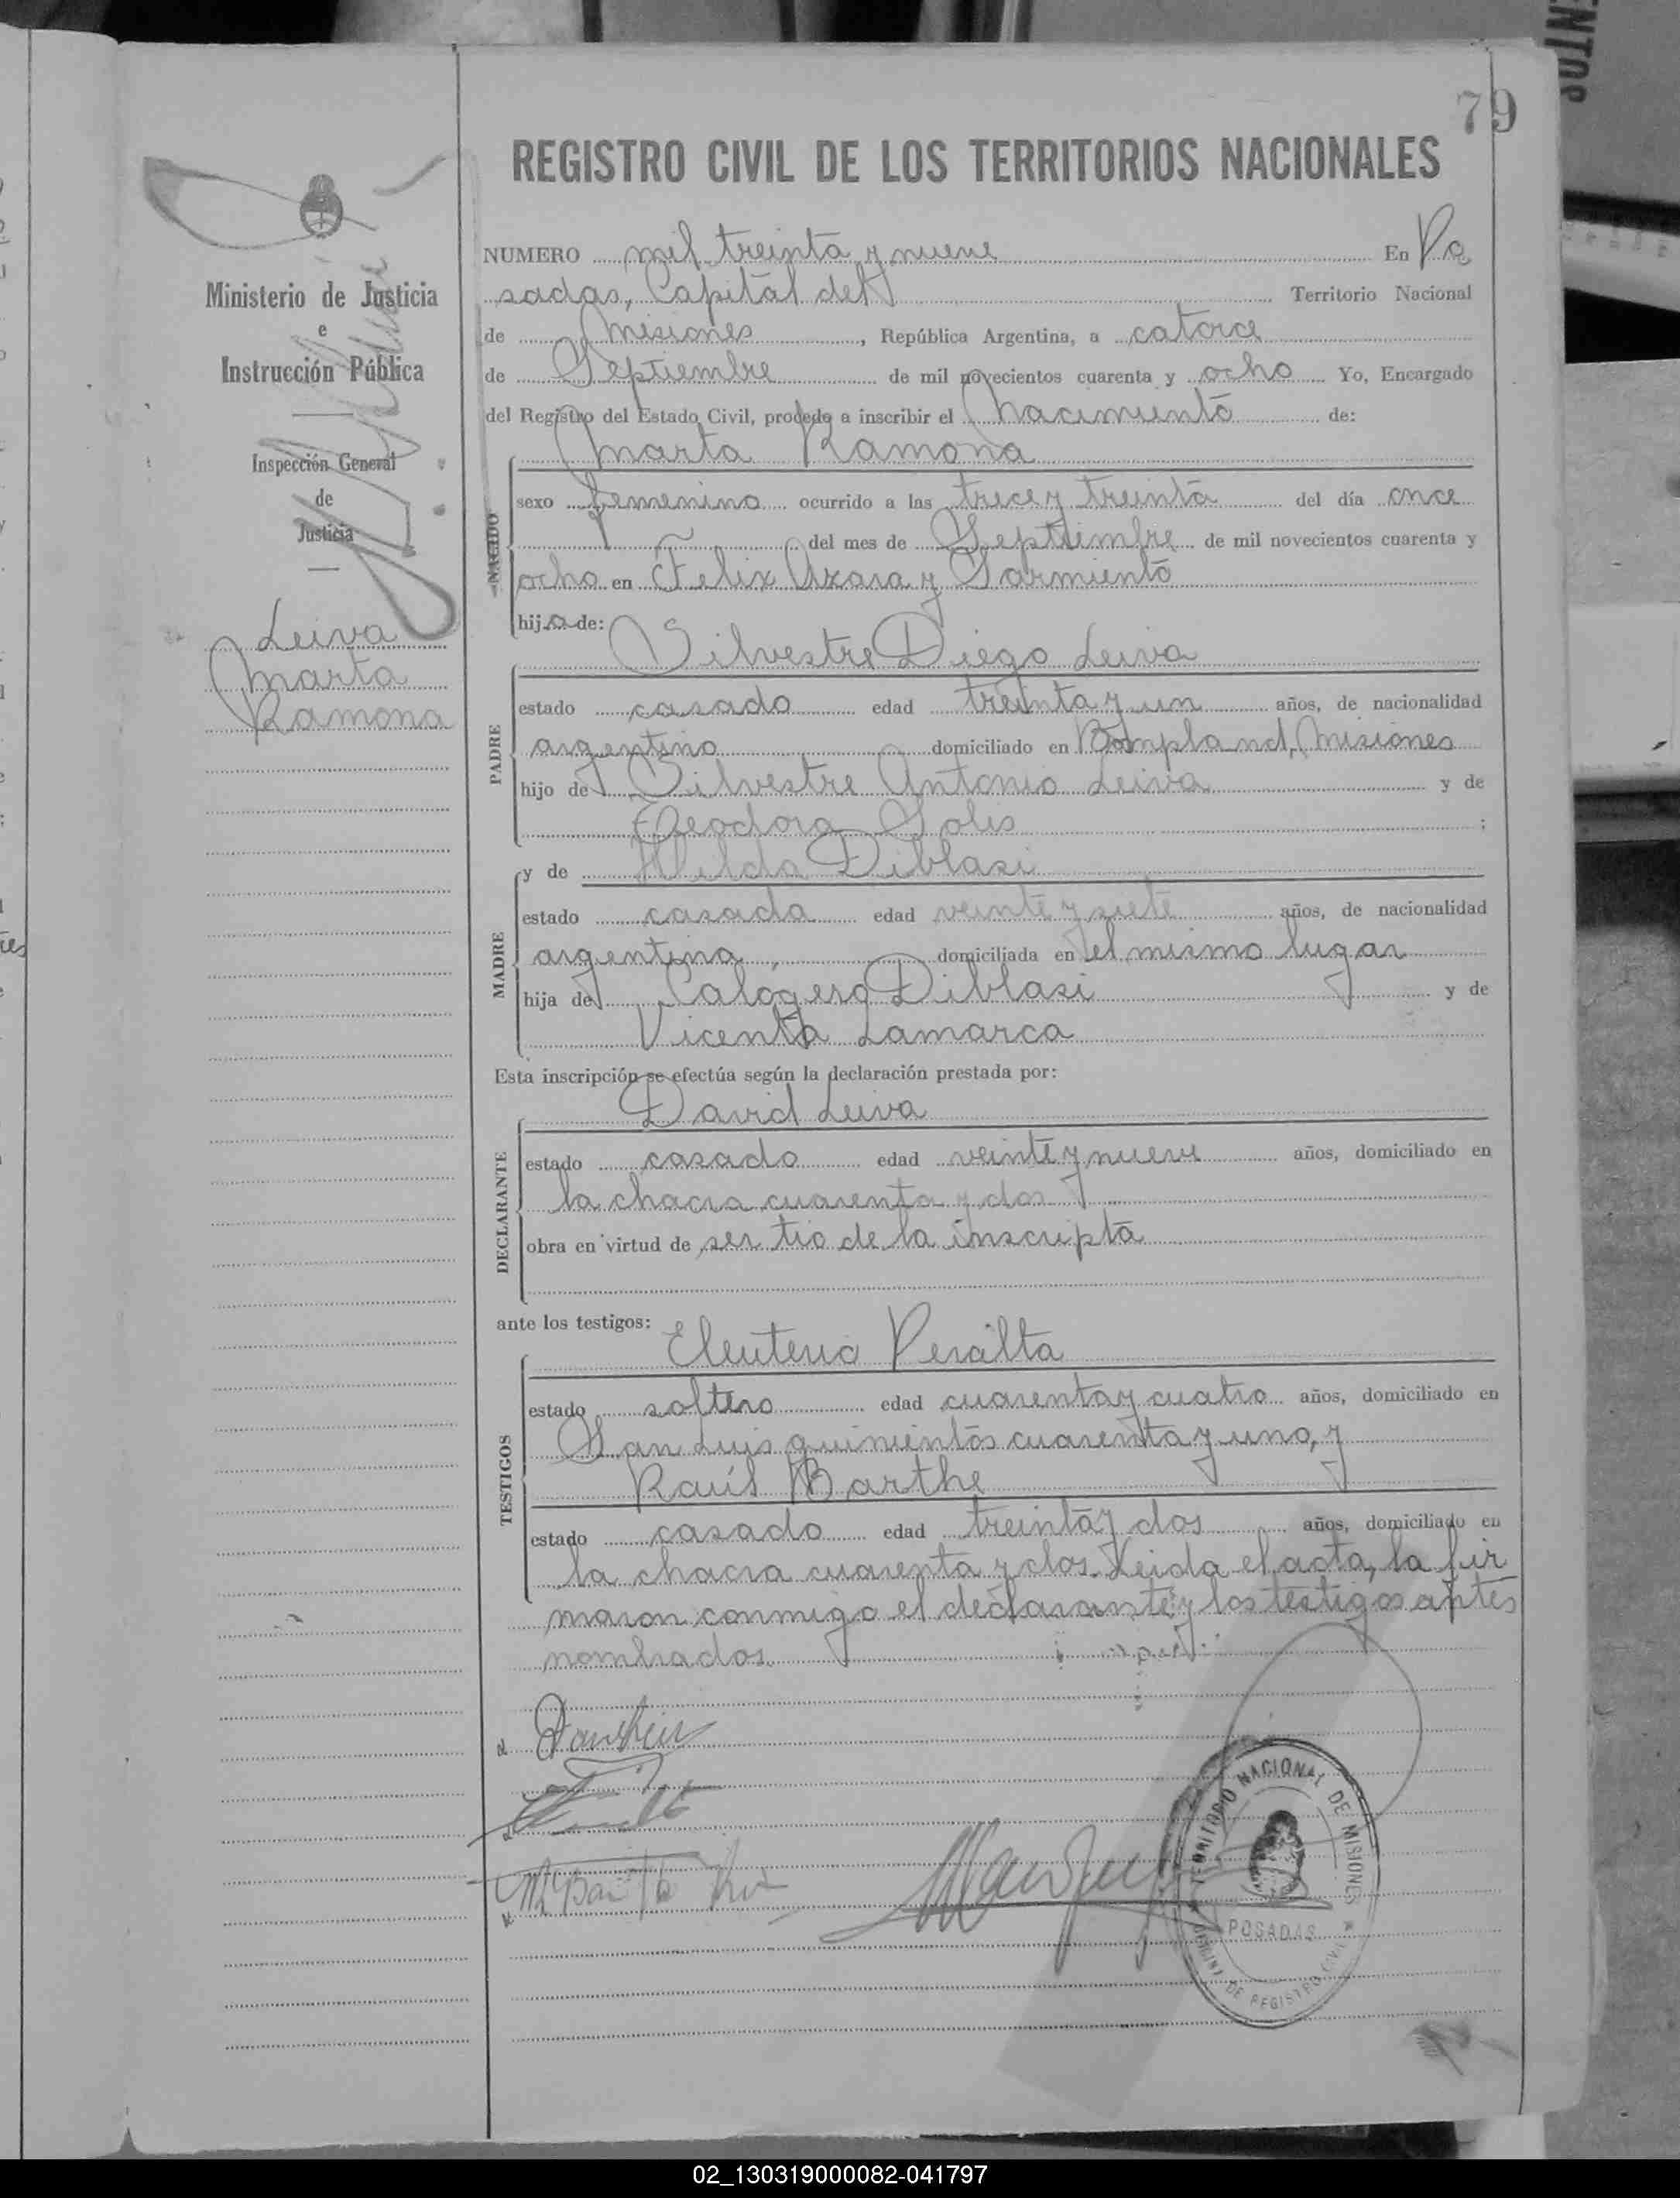 ENTOS
79
REGISTRO CIVIL DE LOS TERRITORIOS NACIONALES
NUMERO mil treinta y nueve En Po
sadas, Capital del Territorio Nacional
de Misiones, República Argentina, a catorce
de Septiembre de mil novecientos cuarenta y ocho Yo, Encargado
del Registro del Estado Civil, procedo a inscribir el Nacimiento de:
Ministerio de Justicia
e
Instrucción Pública
Inspección General
de
Justicia
Leiva
Marta
Ramona
NACIDO
Marta Ramona
sexo femenino ocurrido a las trece y treinta del día once
del mes de Septiembre de mil novecientos cuarenta y
ocho en Felix Azara y Sarmiento
hija de:
PADRE
Silvestre Diego Leiva
estado casado edad treinta y un años, de nacionalidad
argentino domiciliado en Bompland, Misiones
hijo de Silvestre Antonio Leiva y de
Teodora Solis;
MADRE
y de Hilda Diblasi
estado casada edad veinte y siete años, de nacionalidad
argentina, domiciliada en el mismo lugar
hija de Calogero Diblasi y de
Vicenta Lamarca
Esta inscripción se efectúa según la declaración prestada por:
DECLARANTE
David Leiva
estado casado edad veinte y nueve años, domiciliado en
la chacra cuarenta y dos
obra en virtud de ser tio de la inscripta
ante los testigos:
TESTIGOS
Eleuterio Peralta
estado soltero edad cuarenta y cuatro años, domiciliado en
San Luis quinientos cuarenta y uno, y
Raúl Barthe
estado casado edad treinta y dos años, domiciliado en
la chacra cuarenta y dos. Leida el acta, la fir
maron conmigo el declarante y los testigos antes
nombrados.
TERRITORIO NACIONAL DE MISIONES
POSADAS
OFICINA DE REGISTRO CIVIL
02_130319000082-041797